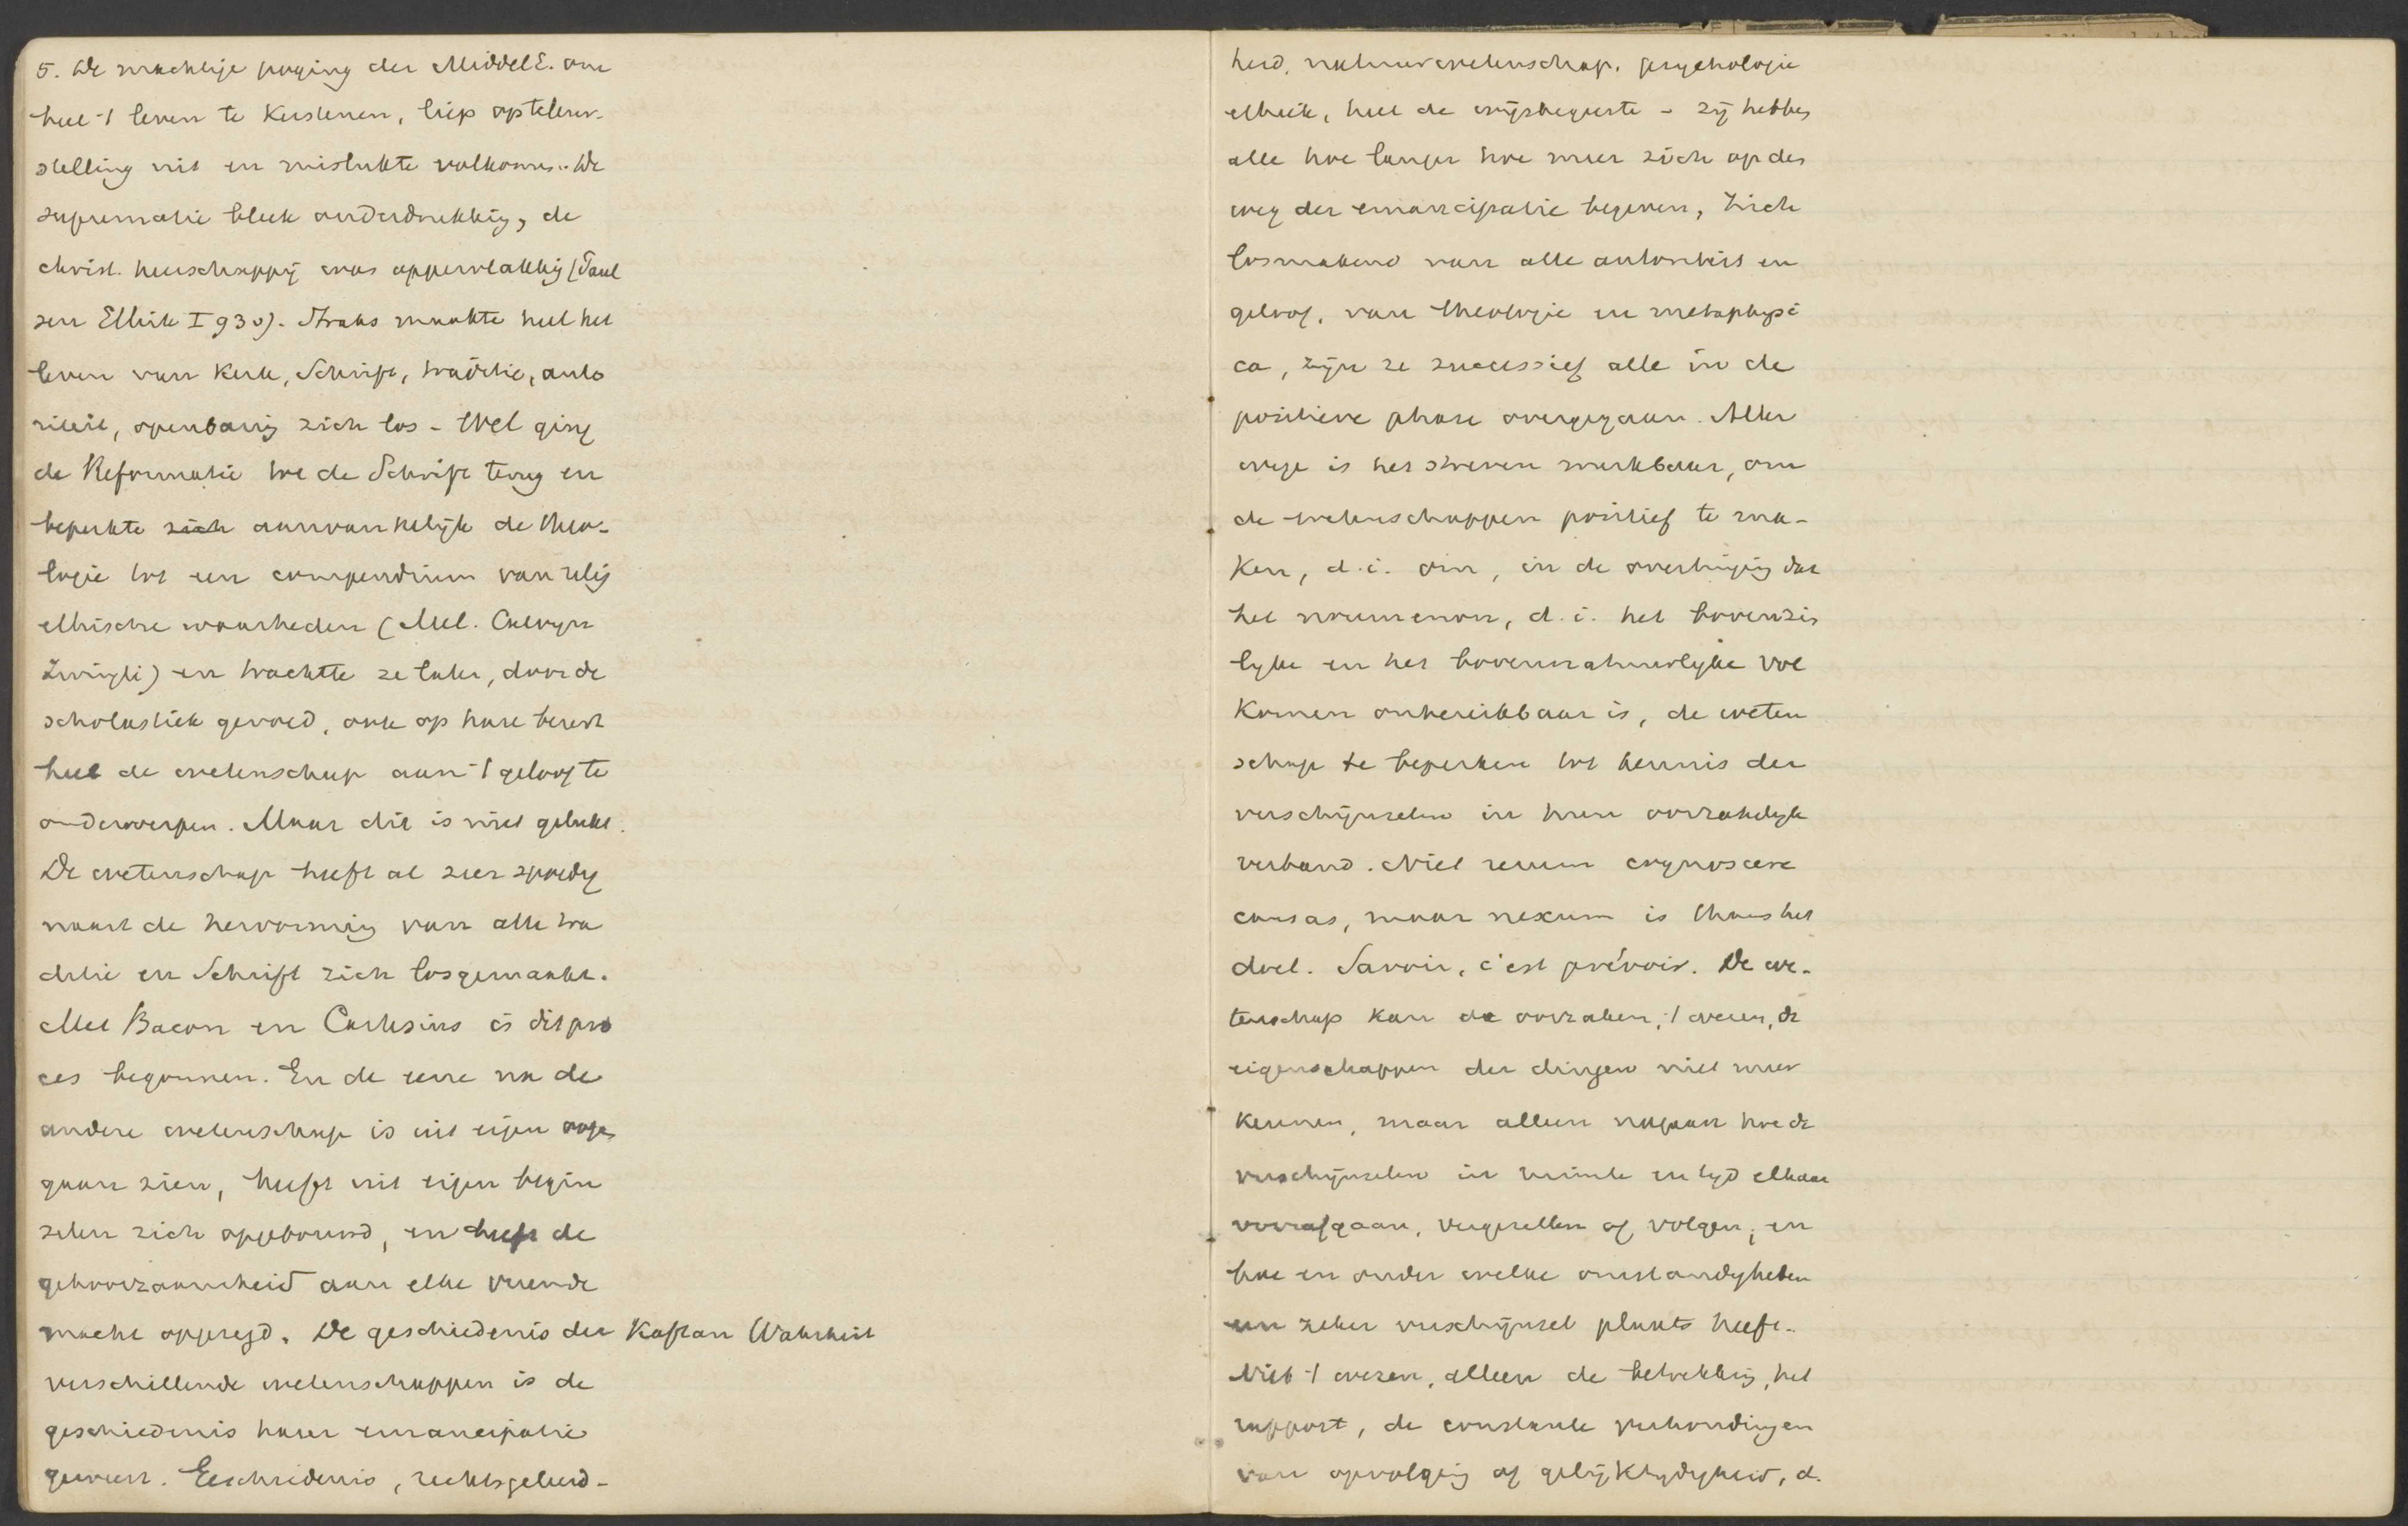 5. De machtige poging der MiddelE. om
heel 't leven te Kerstenen, liep op teleur-
stelling uit en mislukte volkomen. De
suprematie bleek onderdrukking, de
christ. heerschappij was oppervlakkig (Paul
sen Ethik I 930). Straks maakte heel het
leven van Kerk, Schrift, traditie, auto
riteit, openbaring zich los - Wel ging
de Reformatie tot de Schrift terug en
beperkte zich aanvankelijk de theo-
logie tot een compendium van relig
ethische waarheden (Mel. Calvyn
Zwingli) en trachtte ze later, door de
scholastiek gevoed, ook op hare beurt
heel de wetenschap aan 't geloof te
onderwerpen. Maar dit is niet gelukt.
De wetenschap heeft al zeer spoedig
naast de hervorming van alle tra
ditie en Schrift zich losgemaakt.
Met Bacon en Cartesius is dit pro
ces begonnen. En de eene na de
andere wetenschap is uit eigen oogen
gaan zien, heeft uit eigen begin
selen zich opgebouwd, en heeft de
gehoorzaamheid aan elke vreemde
macht opgezegd. De geschiedenis der Kaftan Wahrheit
verschillende wetenschappen is de
geschiedenis harer emancipatie
geweest. Geschiedenis, rechtsgeleerd-
heid, natuurwetenschap, psychologie
ethiek, heel de wijsbegeerte - zij hebben
alle hoe langer hoe meer zich op den
weg der emancipatie begeven, zich
losmakend van alle autoriteit en
geloof, van theologie en metaphysi
ca, zijn ze successief alle in de
positieve phase overgegaan. Aller
wege is het streven merkbaar, om
de wetenschappen positief te ma-
ken, d.i. om, in de overtuiging dat
het noumenon, d.i. het bovenzin
lyke en het bovennatuurlyke vol
komen onbereikbaar is, de weten
schap te beperken tot kennis der
verschijnselen in hun oorzakelyk
verband. Niet rerum cognoscere
causas, maar nexum is thans het
doel. Savoir, c'est prévoir. De we-
tenschap kan de oorzaken, 't wezen, de
eigenschappen der dingen niet meer
kennen, maar alleen nagaan hoe de
verschijnselen in ruimte en tyd elkaar
voorafgaan, vergezellen of volgen, en
hoe en onder welke omstandigheden
een zeker verschijnsel plaats heeft.
Niet 't wezen, alleen de betrekking, het
rapport, de constante verhoudingen
van opvolging of gelijktydigheid, d.